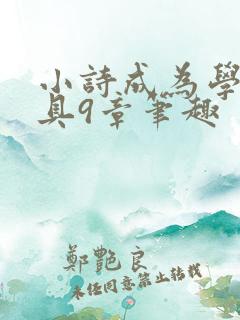 小詩成為學
具9章筆趣
鄭艷良
未经同意禁止转载